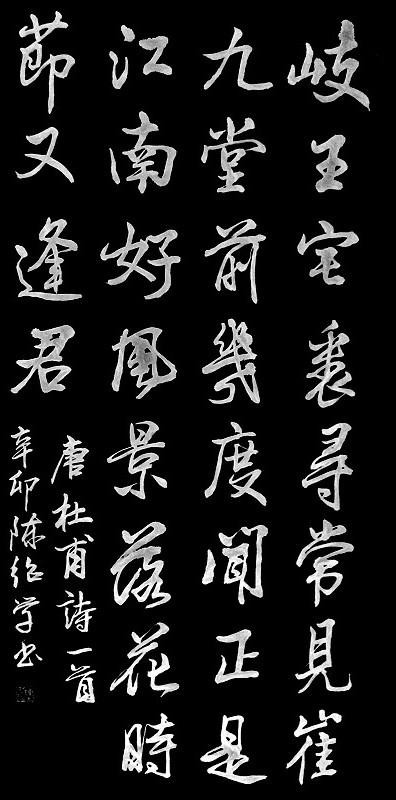 岐王宅裏尋常見崔
九堂前幾度聞正是
江南好風景落花時
節又逢君
唐杜甫詩一首
辛卯陈绍学书